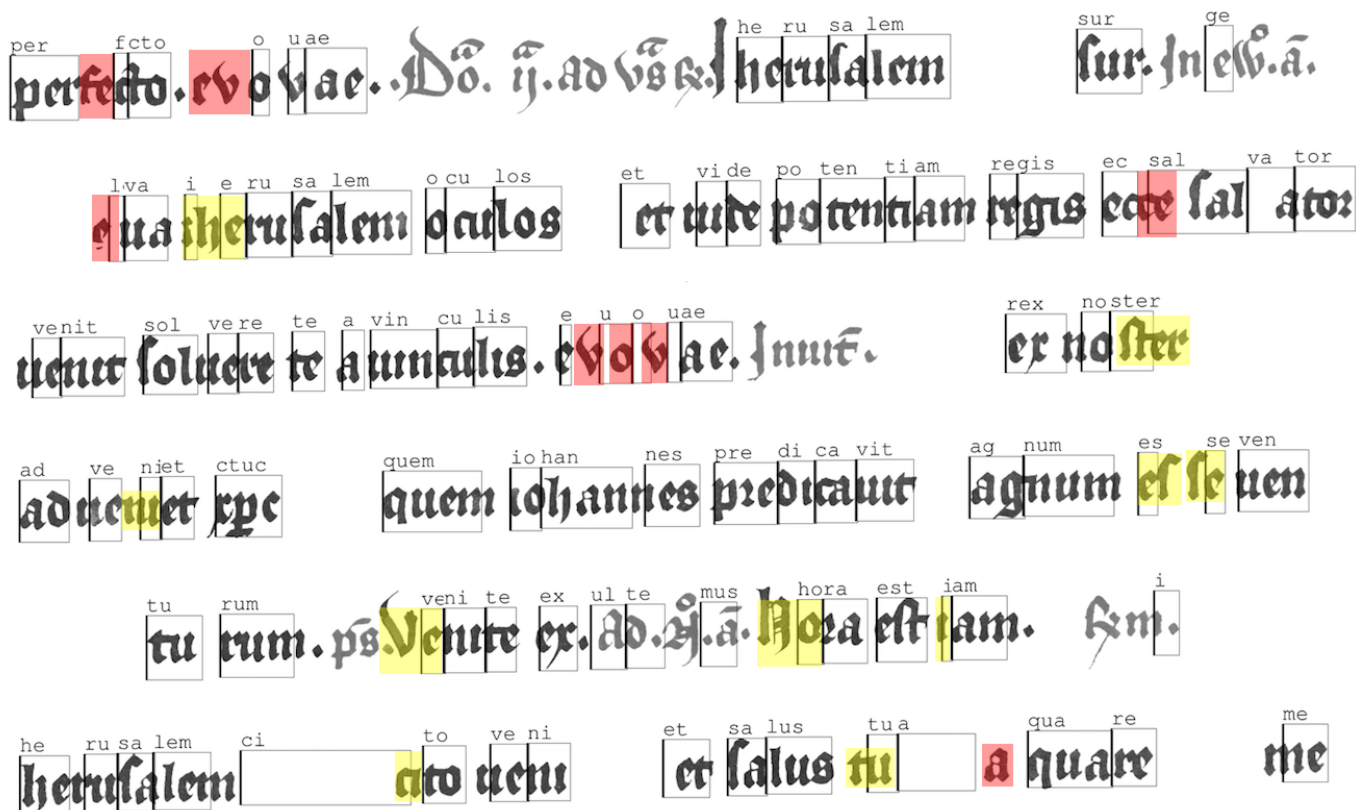 per fcto o u ae he ru sa lem sur ge
perfecto. evovae. ij. ad Iherusalem sur. In
l va i e ru sa lem o cu los et vi de po ten ti am re gis ec sal va tor
eua iherusalem oculos et uide potentiam regis ecce sal ator
ve nit sol ve re te a vin cu lis e u o uae rex no ster
uenit soluere te a uinculis. evovae. Inuit. ex noster
ad ve ni et ctuc quem io han nes pre di ca vit ag num es se ven
adueniet xpc quem iohannes predicauit agnum esse uen
tu rum ve ni te ex ul te mus hora est iam i
tu rum. ps. Venite ex. ad. a. Hora est iam.
he ru sa lem ci to ve ni et sa lus tu a qua re me
herusalem cito ueni et salus tu a quare me